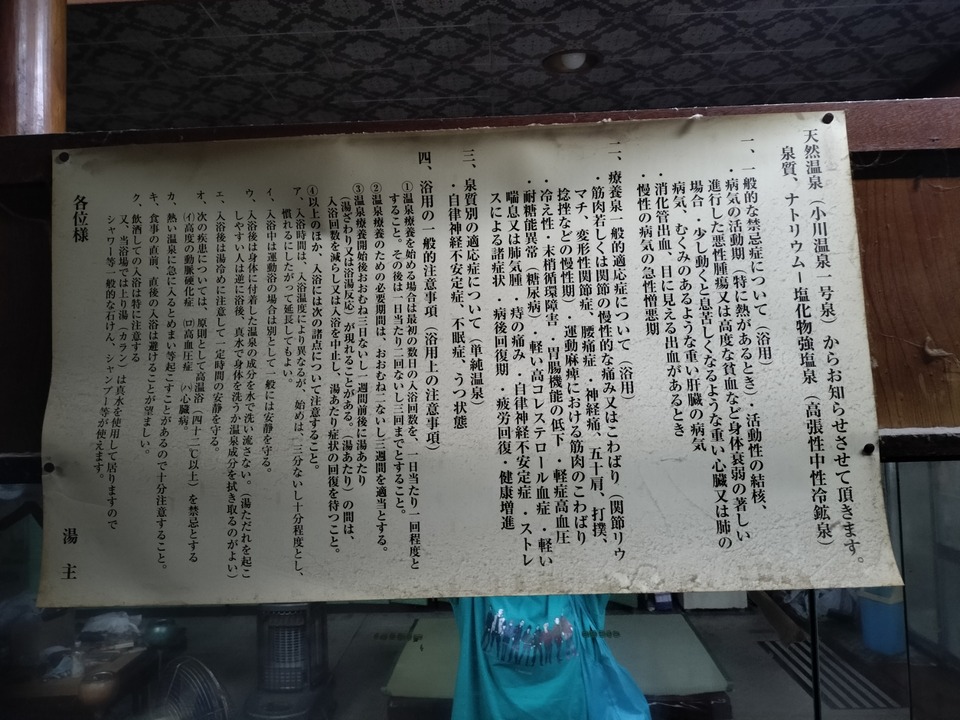 天然温泉（小川温泉一号泉）からお知らせさせて頂きます。
泉質、ナトリウム－塩化物強塩泉（高張性中性冷鉱泉）
一、一般的な禁忌症について（浴用）
・病気の活動期（特に熱があるとき）・活動性の結核、
進行した悪性腫瘍又は高度な貧血など身体衰弱の著しい
場合・少し動くと息苦しくなるような重い心臓又は肺の
病気、むくみのあるような重い肝臓の病気
・消化管出血、目に見える出血があるとき
・慢性の病気の急性憎悪期
二、療養泉一般的適応症について（浴用）
・筋肉若しくは関節の慢性的な痛み又はこわばり（関節リウ
マチ、変形性関節症、腰痛症・神経痛、五十肩、打撲、
捻挫などの慢性期・運動麻痺における筋肉のこわばり
・冷え性・末梢循環障害・胃腸機能の低下・軽症高血圧
・耐糖能異常（糖尿病）・軽い高コレステロール血症・軽い
喘息又は肺気腫・痔の痛み・自律神経不安定症・ストレ
スによる諸症状・病後回復期・疲労回復・健康増進
三、泉質別の適応症について（単純温泉）
・自律神経不安定症、不眠症、うつ状態
四、浴用の一般的注意事項（浴用上の注意事項）
①温泉療養を始める場合は最初の数日の入浴回数を、一日当たり一回程度と
すること。その後は一日当たり二回ないし三回までとすること。
②温泉療養のための必要期間は、おおむね二ないし三週間を適当とする。
③温泉療養開始後おおむね三日ないし一週間前後に湯あたり
（湯ざわり又は浴湯反応）が現れることがある。（湯あたり）の間は、
入浴回数を減らし又は入浴を中止し、湯あたり症状の回復を待つこと。
④以上のほか、入浴には次の諸点について注意すること。
ア、入浴時間は、入浴温度により異なるが、始めは、三分ないし十分程度とし、
慣れるにしたがって延長してもよい。
イ、入浴中は運動浴の場合は別として一般には安静を守る。
ウ、入浴後は身体に付着した温泉の成分を水で洗い流さない。（湯ただれを起こ
しやすい人は逆に浴後、真水で身体を洗うか温泉成分を拭き取るのがよい）
エ、入浴後は湯冷めに注意して一定時間の安静を守る。
オ、次の疾患については、原則として高温浴（四十二℃以上）を禁忌とする
㈠高度の動脈硬化症 ㈡高血圧症 ㈢心臓病
カ、熱い温泉に急に入るとめまい等起こすことがあるので十分注意すること。
キ、食事の直前、直後の入浴は避けることが望ましい。
ク、飲酒しての入浴は特に注意する
又、当浴場では上り湯（カラン）は真水を使用して居りますので
シャワー等一般的な石けん、シャンプー等が使えます。
各位様
湯 主